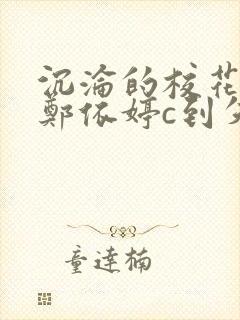 沉沦的校花
郑依婷c到失
童达楠